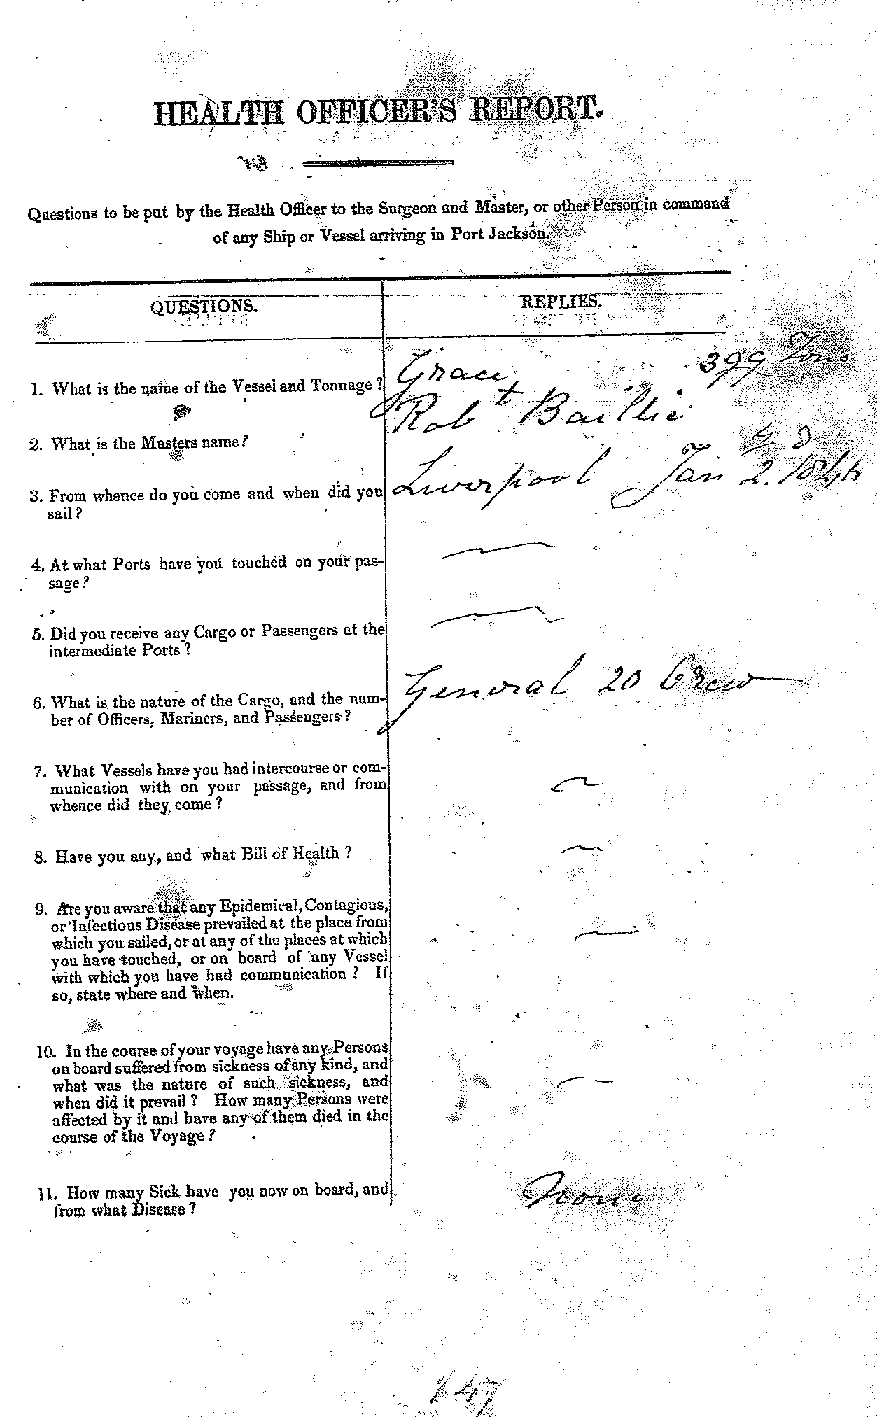 HEALTH OFFICER'S REPORT.
Questions to be put by the Health Officer to the Surgeon and Master, or other Person in command
of any Ship or Vessel arriving in Port Jackson.
QUESTIONS.
REPLIES.
1. What is the name of the Vessel and Tonnage?
Grace 399 Tons
2. What is the Masters name?
Robt Baillie
3. From whence do you come and when did you
sail?
Liverpool Jan 2. 1846
4. At what Ports have you touched on your pas-
sage?
—
5. Did you receive any Cargo or Passengers at the
intermediate Ports?
—
6. What is the nature of the Cargo, and the num-
ber of Officers, Mariners, and Passengers?
General 20 Crew
7. What Vessels have you had intercourse or com-
munication with on your passage, and from
whence did they come?
—
8. Have you any, and what Bill of Health?
—
9. Are you aware that any Epidemical, Contagious,
or Infectious Disease prevailed at the place from
which you sailed, or at any of the places at which
you have touched, or on board of any Vessel
with which you have had communication? If
so, state where and when.
—
10. In the course of your voyage have any Persons
on board suffered from sickness of any kind, and
what was the nature of such sickness, and
when did it prevail? How many Persons were
affected by it and have any of them died in the
course of the Voyage?
—
11. How many Sick have you now on board, and
from what Disease?
None
47